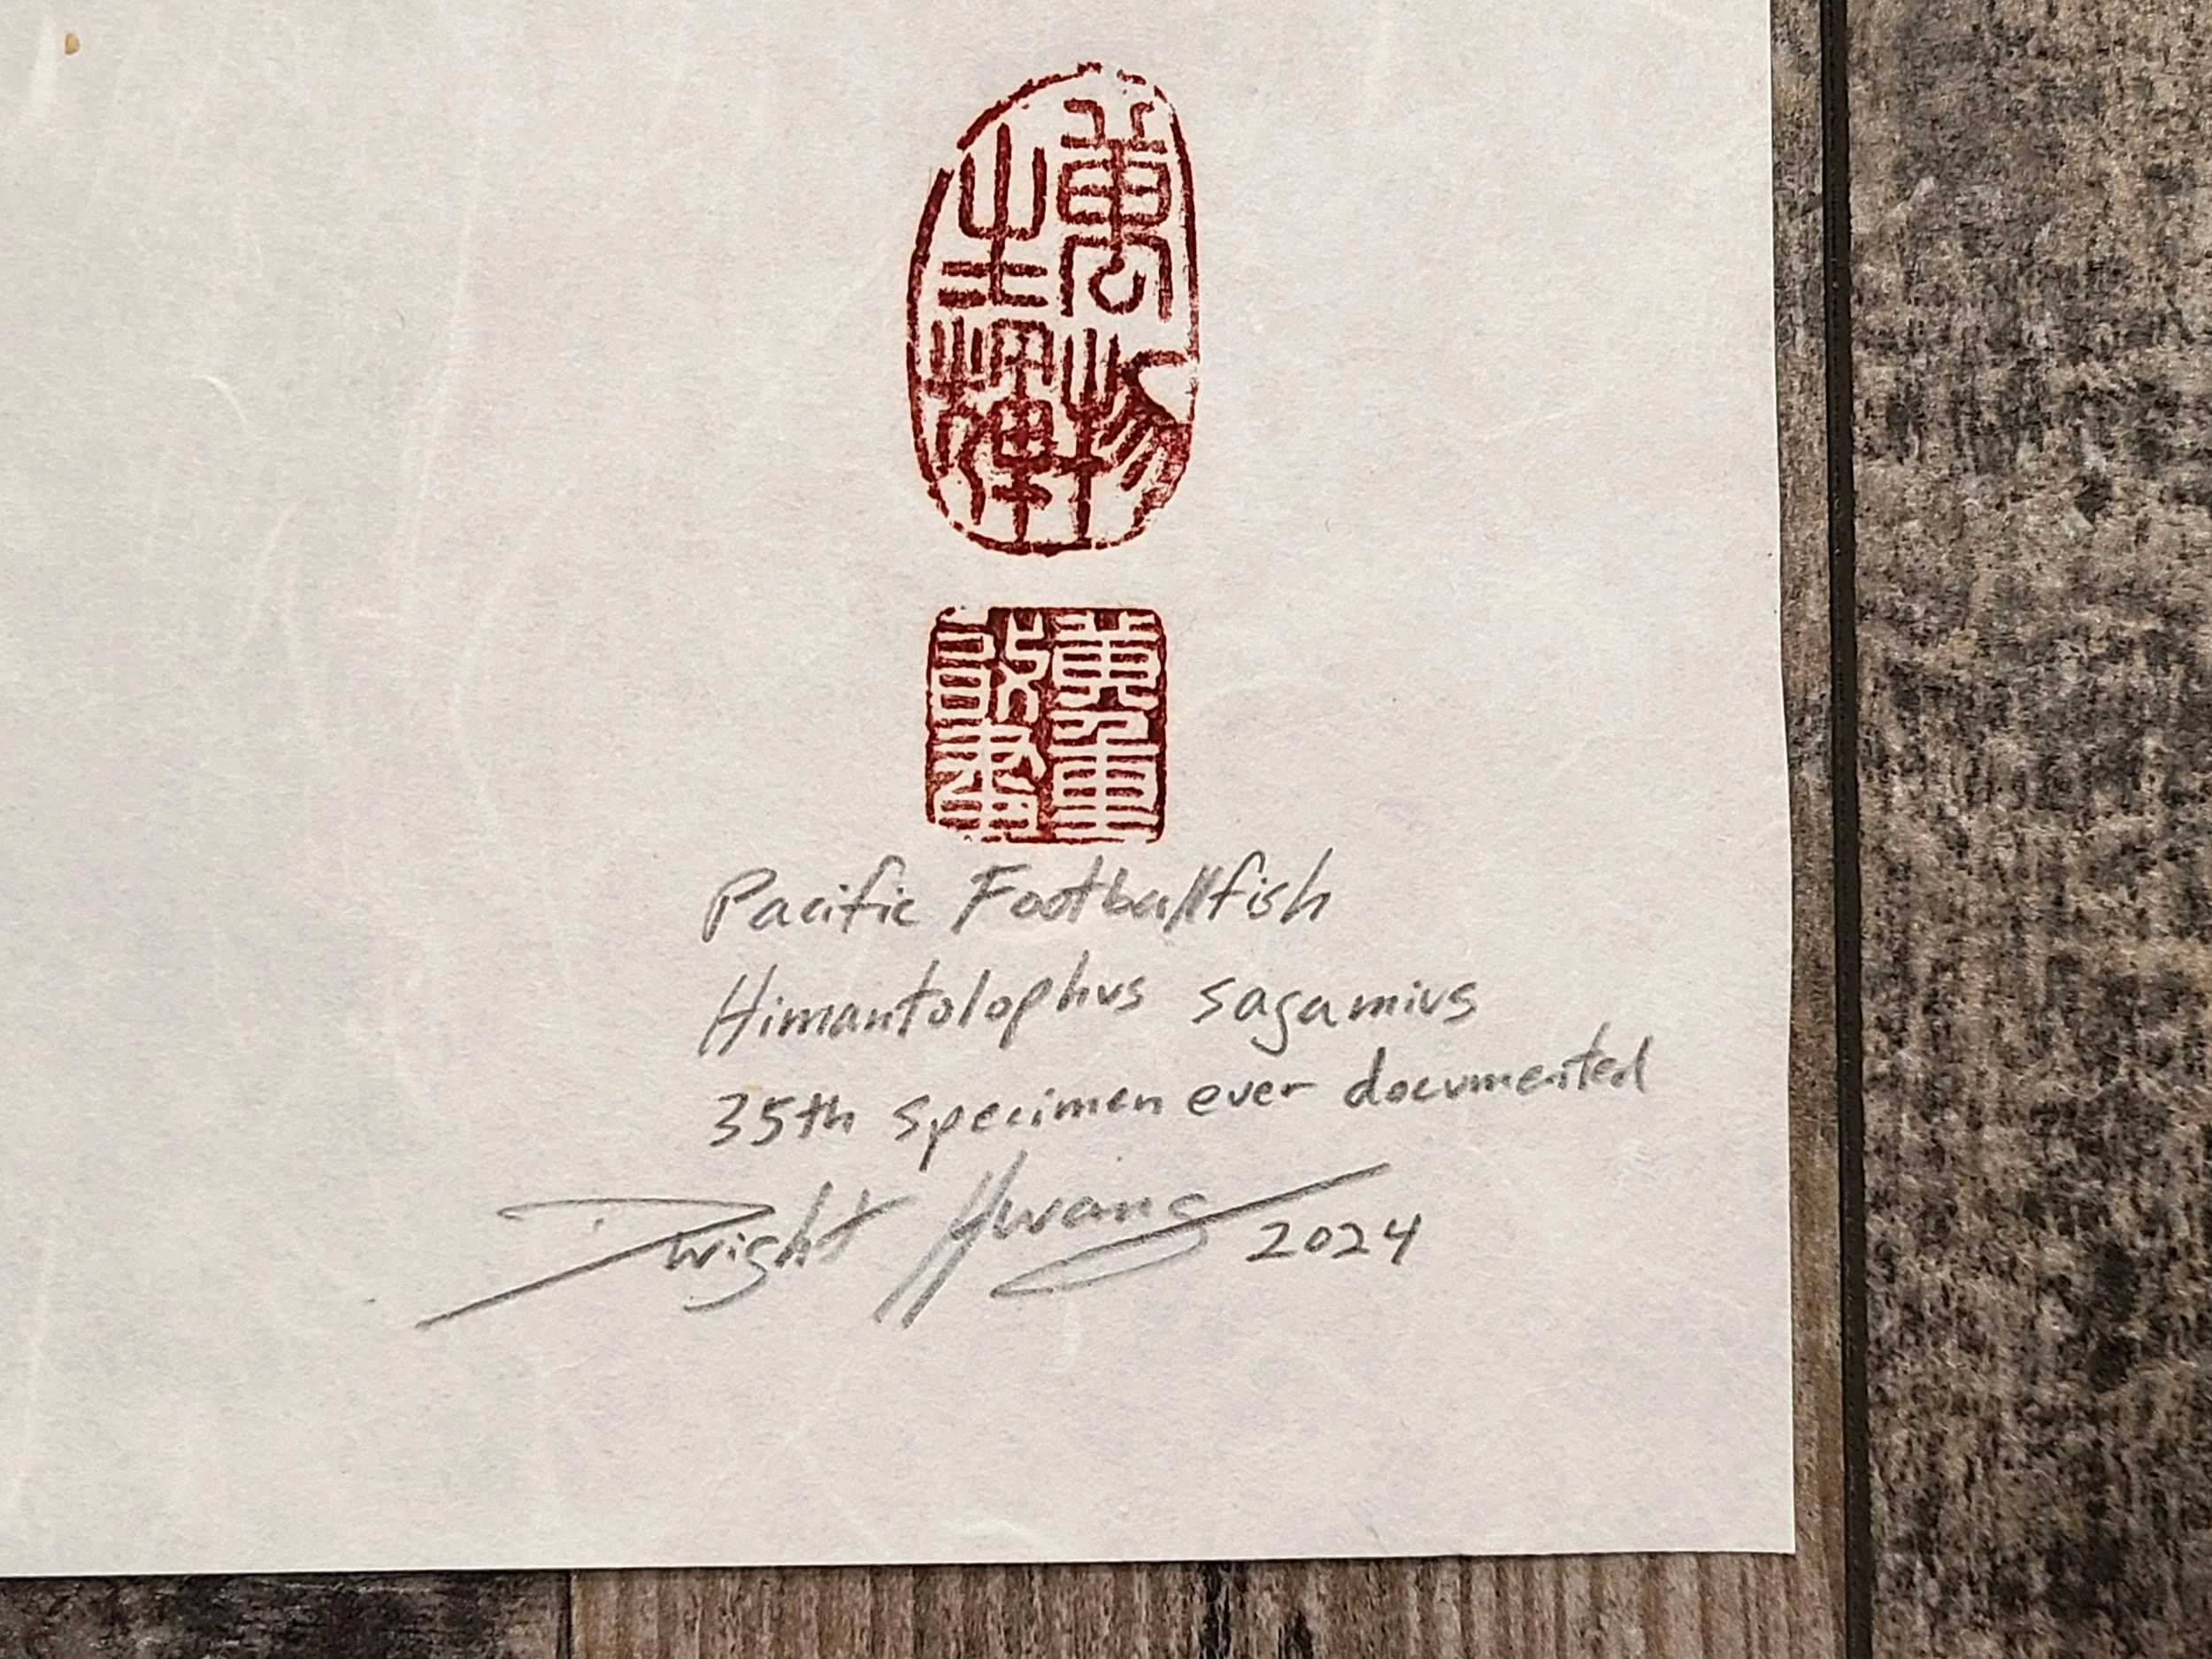 萬物
生輝
Pacific Footballfish
Himantolophus sagamius
35th specimen ever documented
Dwight Hwang 2024